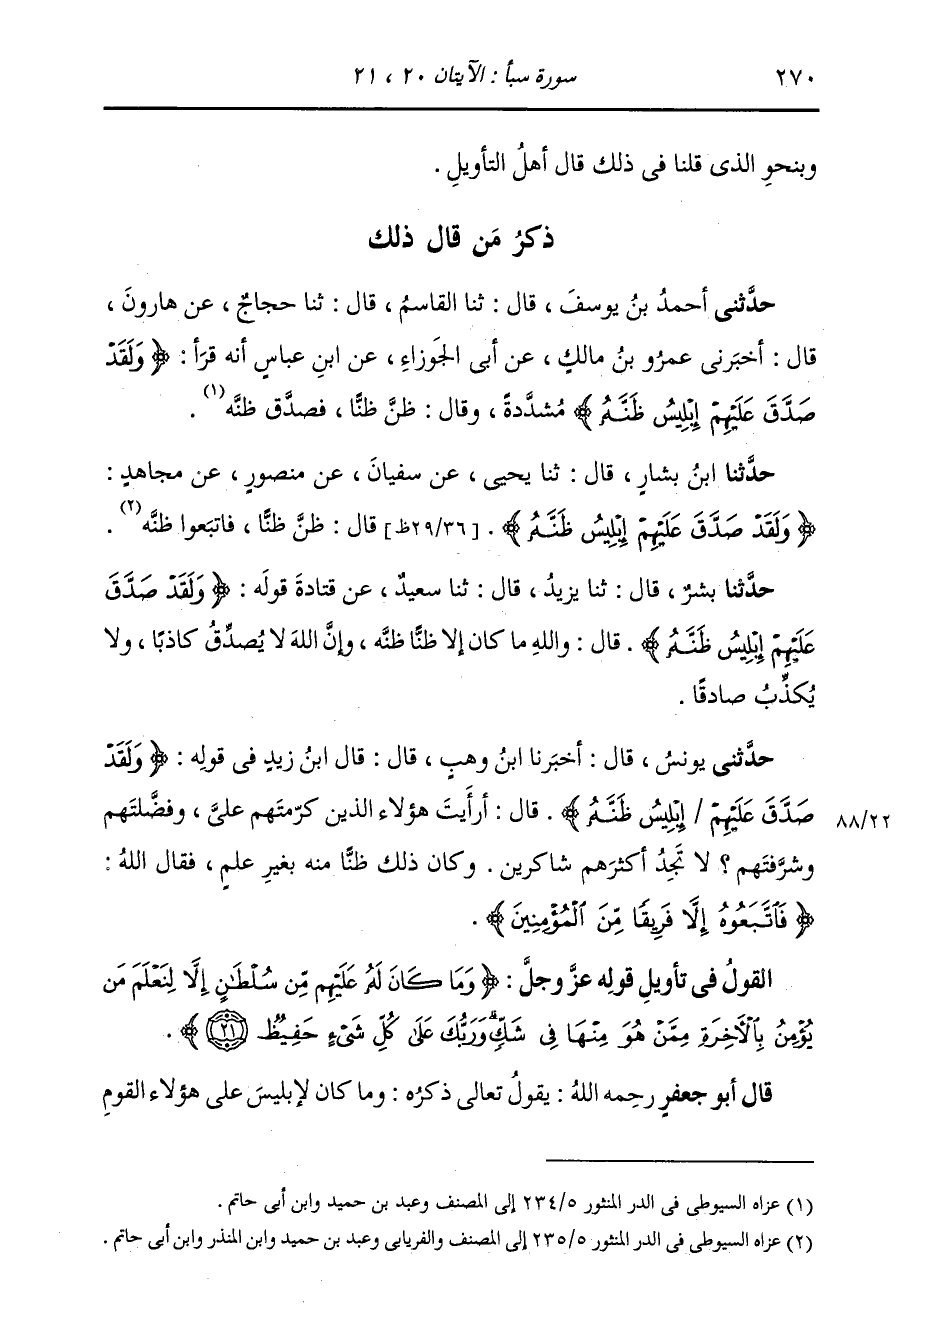 ٢٧٠ سورة سبأ : الآيتان ٢٠ ، ٢١
وبنحوِ الذى قلنا فى ذلك قال أهلُ التأويلِ .
ذكرُ مَن قال ذلك
حدَّثنى أحمدُ بنُ يوسفَ ، قال : ثنا القاسمُ ، قال : ثنا حجاجٌ ، عن هارونَ ،
قال : أخبَرنى عمرُو بنُ مالكٍ ، عن أبى الجَوزاءِ ، عن ابنِ عباسٍ أنه قرَأ : ﴿ وَلَقَدْ
صَدَّقَ عَلَيْهِمْ إِبْلِيسُ ظَنَّهُ ﴾ مُشدَّدةً ، وقال : ظنَّ ظنًّا ، فصدَّق ظنَّه (١) .
حدَّثنا ابنُ بشارٍ ، قال : ثنا يحيى ، عن سفيانَ ، عن منصورٍ ، عن مجاهدٍ :
﴿ وَلَقَدْ صَدَّقَ عَلَيْهِمْ إِبْلِيسُ ظَنَّهُ ﴾ . [٢٩/٣٦ظ] قال : ظنَّ ظنًّا ، فاتبَعوا ظنَّه (٢) .
حدَّثنا بشرٌ ، قال : ثنا يزيدُ ، قال : ثنا سعيدٌ ، عن قتادةَ قولَه : ﴿ وَلَقَدْ صَدَّقَ
عَلَيْهِمْ إِبْلِيسُ ظَنَّهُ ﴾ . قال : واللهِ ما كان إلا ظنًّا ظنَّه ، وإنَّ اللهَ لا يُصدِّقُ كاذبًا ، ولا
يُكذِّبُ صادقًا .
حدَّثنى يونسُ ، قال : أخبَرنا ابنُ وهبٍ ، قال : قال ابنُ زيدٍ فى قولِه : ﴿ وَلَقَدْ
صَدَّقَ عَلَيْهِمْ / إِبْلِيسُ ظَنَّهُ ﴾ . قال : أرأَيتَ هؤلاء الذين كرّمتَهم علىَّ ، وفضَّلتَهم ٨٨/٢٢
وشرَّفتَهم ؟ لا تَجِدُ أكثرَهم شاكرين . وكان ذلك ظنًّا منه بغيرِ علمٍ ، فقال اللهُ :
﴿ فَاتَّبَعُوهُ إِلَّا فَرِيقًا مِّنَ الْمُؤْمِنِينَ ﴾ .
القولُ فى تأويلِ قولِه عزَّ وجلَّ : ﴿ وَمَا كَانَ لَهُ عَلَيْهِم مِّن سُلْطَانٍ إِلَّا لِنَعْلَمَ مَن
يُؤْمِنُ بِالْآخِرَةِ مِمَّنْ هُوَ مِنْهَا فِى شَكٍّ ۗ وَرَبُّكَ عَلَىٰ كُلِّ شَىْءٍ حَفِيظٌ ٢١ ﴾ .
قال أبو جعفرٍ رحِمه اللهُ : يقولُ تعالى ذكرُه : وما كان لإبليسَ على هؤلاء القومِ
(١) عزاه السيوطى فى الدر المنثور ٢٣٤/٥ إلى المصنف وعبد بن حميد وابن أبى حاتم .
(٢) عزاه السيوطى فى الدر المنثور ٢٣٥/٥ إلى المصنف والفريابى وعبد بن حميد وابن المنذر وابن أبى حاتم .